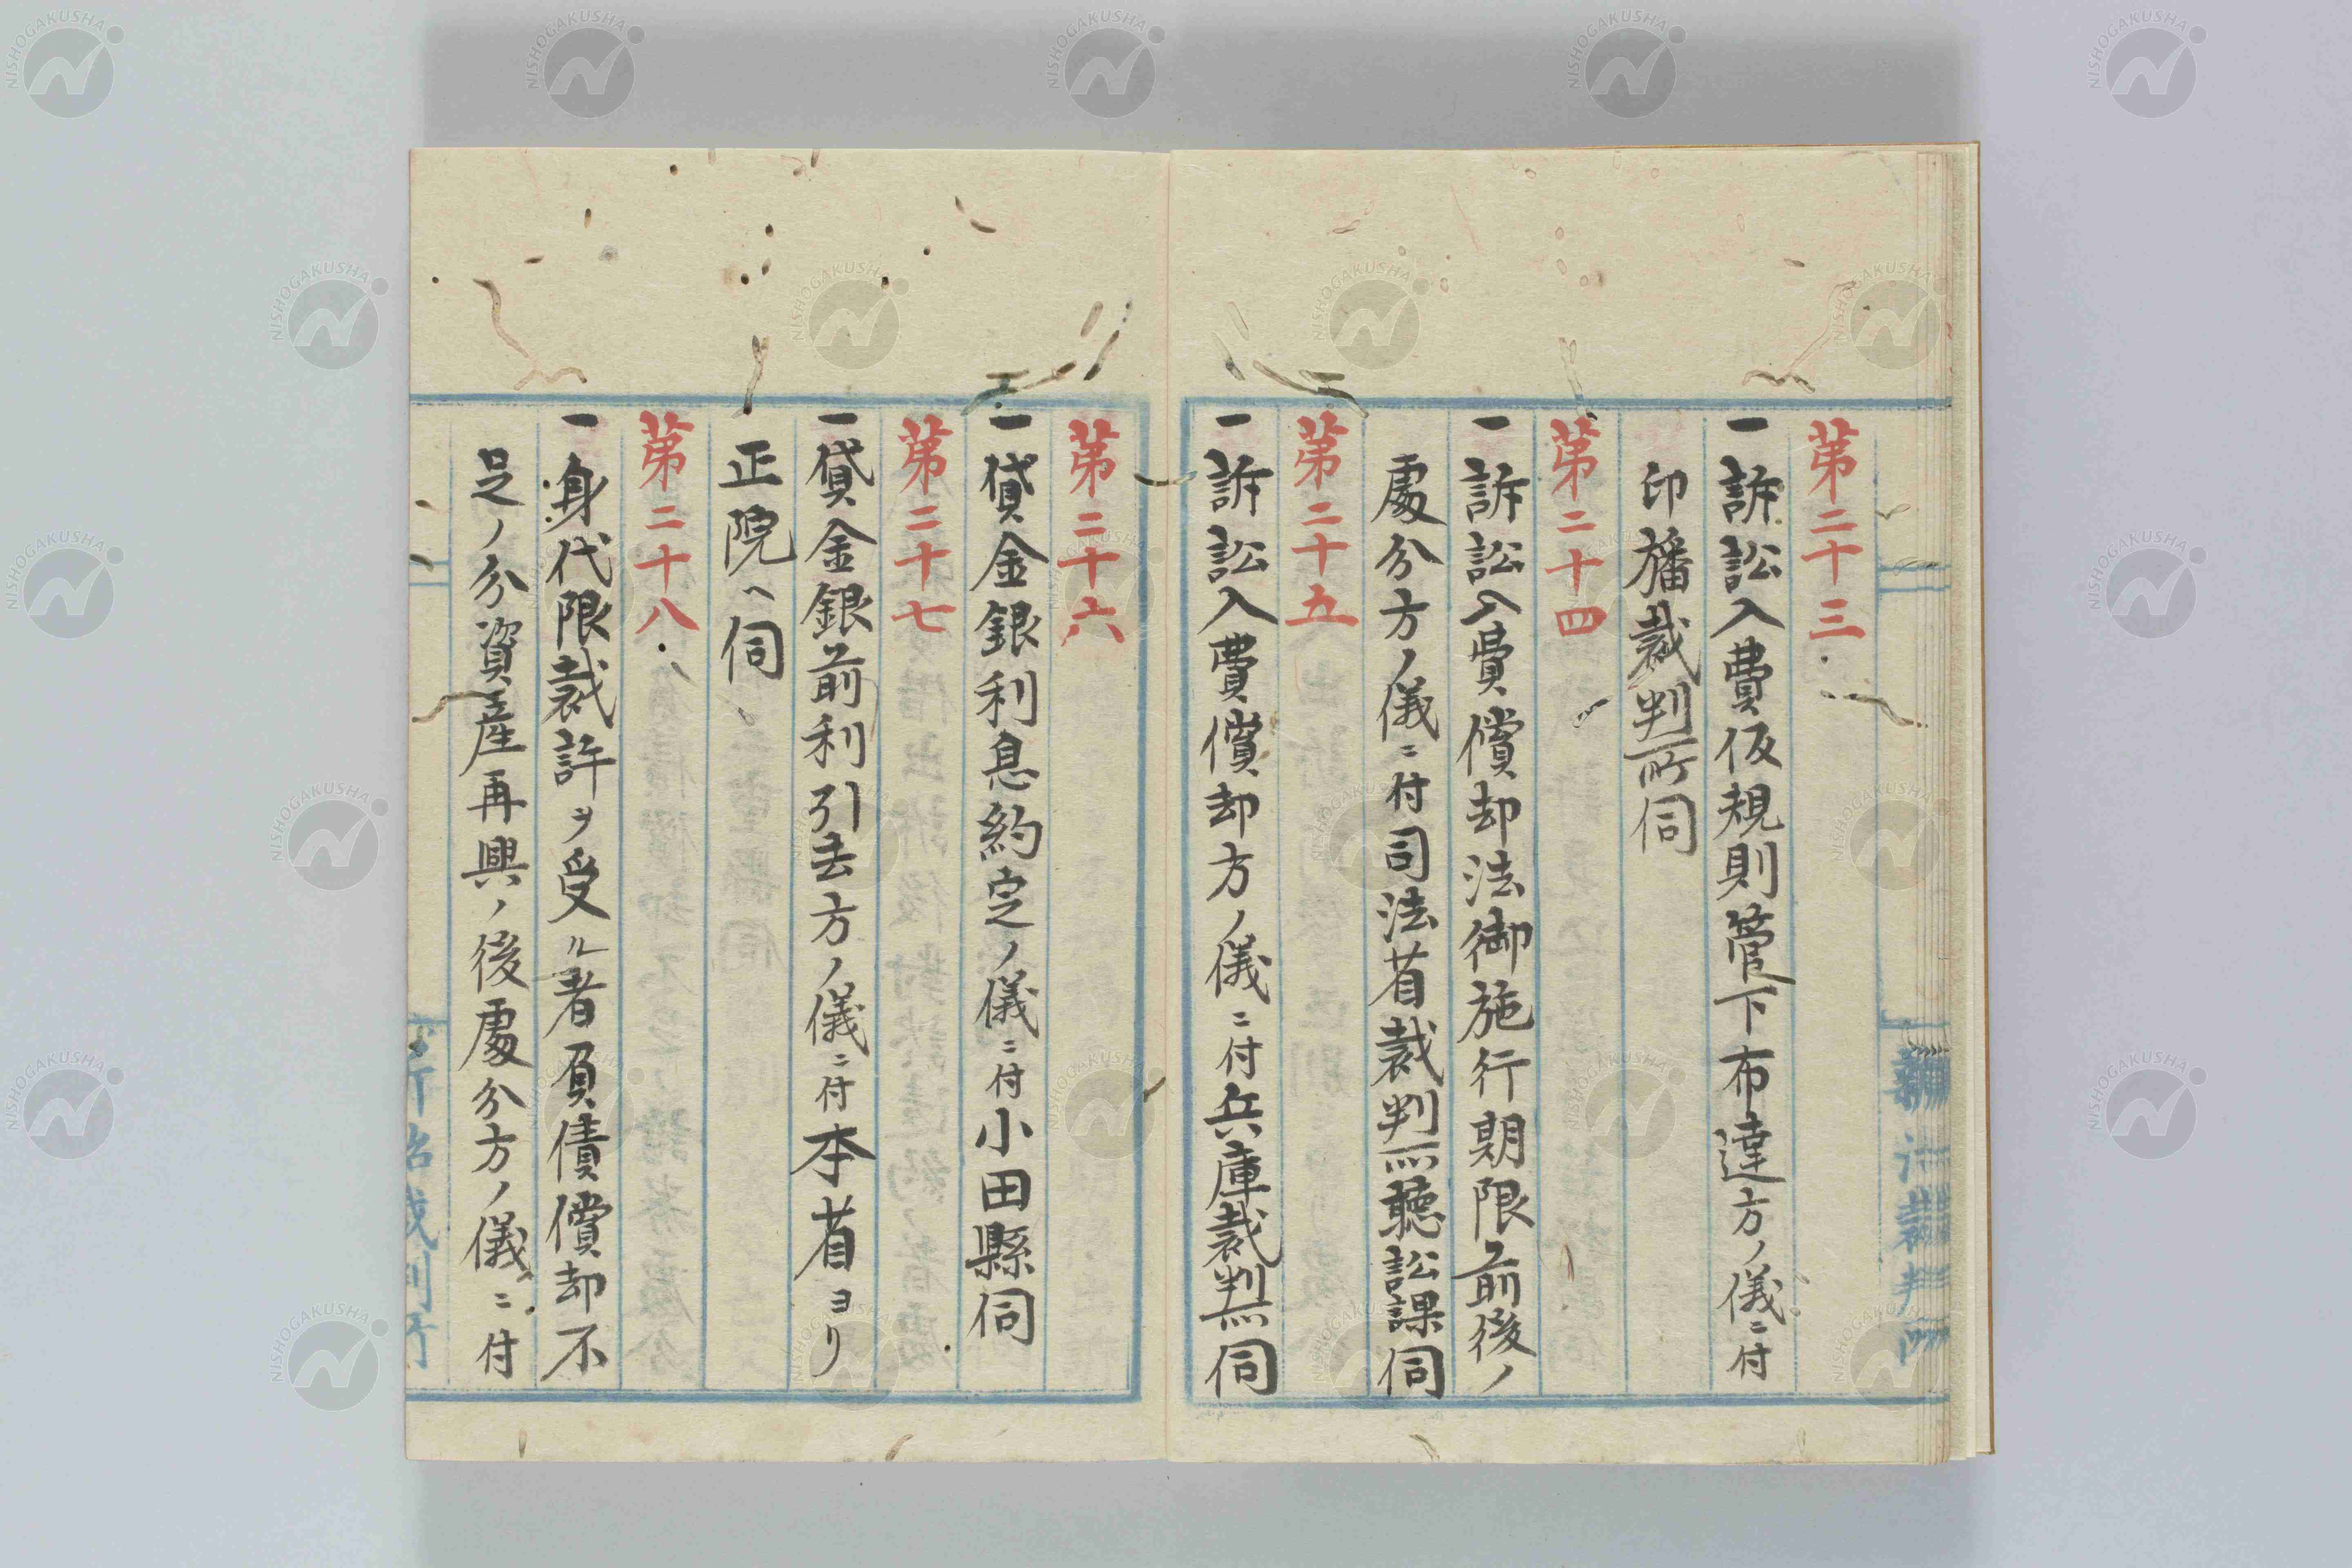 第二十三
一訴訟入費仮規則管下布達方ノ儀ニ付
印旛裁判所伺
第二十四
一訴訟入費償却法御施行期限前後ノ
處分方ノ儀ニ付司法省裁判所聽訟課伺
第二十五
一訴訟入費償却方ノ儀ニ付兵庫裁判所伺
第二十六
一貸金銀利息約定ノ儀ニ付小田縣伺
第二十七
一貸金銀前利引去方ノ儀ニ付本省ヨリ
正院ヘ伺
第二十八
一身代限裁許ヲ受ル者負債償却不
足ノ分資産再興ノ後處分方ノ儀ニ付
NISHOGAKUSHA